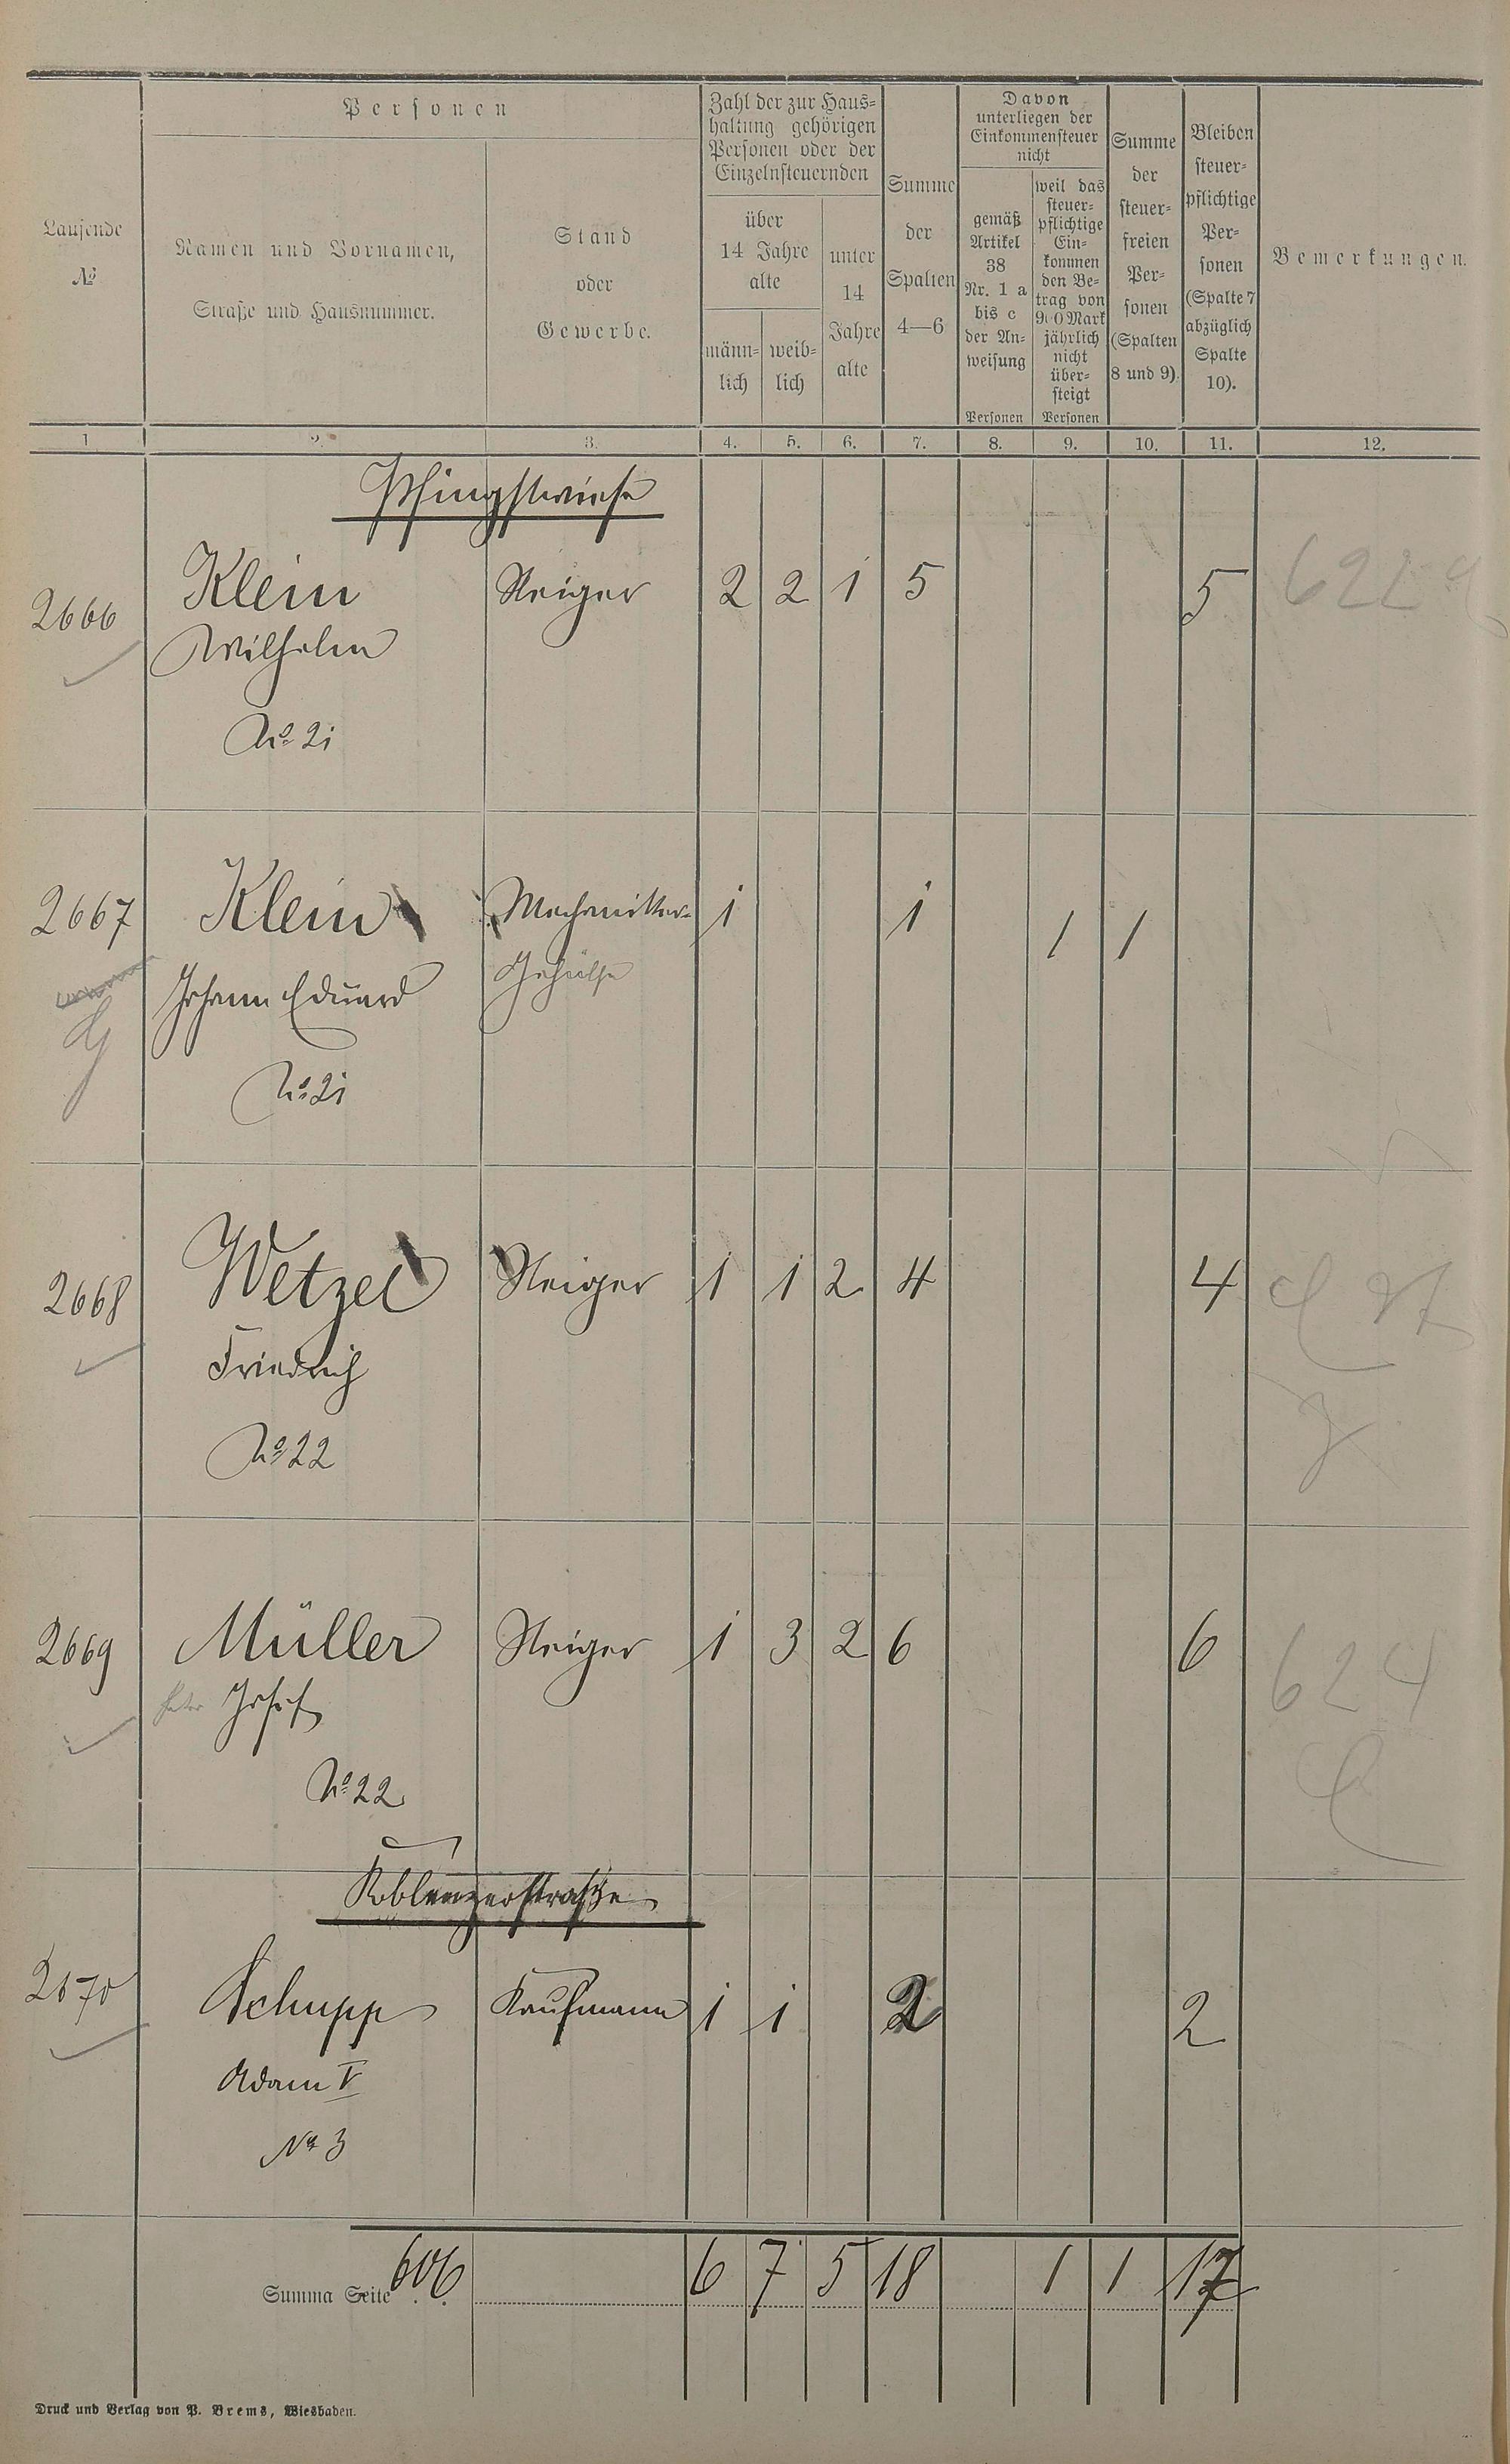 Laufende
№
Personen
Namen und Vornamen,
Straße und Hausnummer.
Stand
oder
Gewerbe.
Zahl der zur Haus=
haltung gehörigen
Personen oder der
Einzelnsteuernden
über
14 Jahre
alte
männ=
lich
weib=
lich
unter
14
Jahre
alte
Summe
der
Spalten
4—6
Davon
unterliegen der
Einkommensteuer
nicht
gemäß
Artikel
38
Nr. 1 a
bis c
der An=
weisung
Personen
weil das
steuer=
pflichtige
Ein=
kommen
den Be=
trag von
900 Mark
jährlich
nicht
über=
steigt
Personen
Summe
der
steuer=
freien
Per=
sonen
(Spalten
8 und 9).
Bleiben
steuer=
pflichtige
Per=
sonen
(Spalte 7
abzüglich
Spalte
10).
Bemerkungen.
1 2. 3. 4. 5. 6. 7. 8. 9. 10. 11. 12.
Pfingstwiese
2666 Klein Steiger 2 2 1 5 5
Wilhelm
No 21
2667 Klein Mechaniker= 1 1 1 1
Johann Eduard Gehülfe
No 21
2668 Wetzel Steiger 1 1 2 4 4
Friedrich
No 22
2669 Müller Steiger 1 3 2 6 6 624
Josef
No 22
Koblenzerstraße
2670 Schupp Kaufmann 1 1 2 2
Adam V
No 3
Summa Seite 606 6 7 5 18 1 1 17
Druck und Verlag von P. Brems, Wiesbaden.